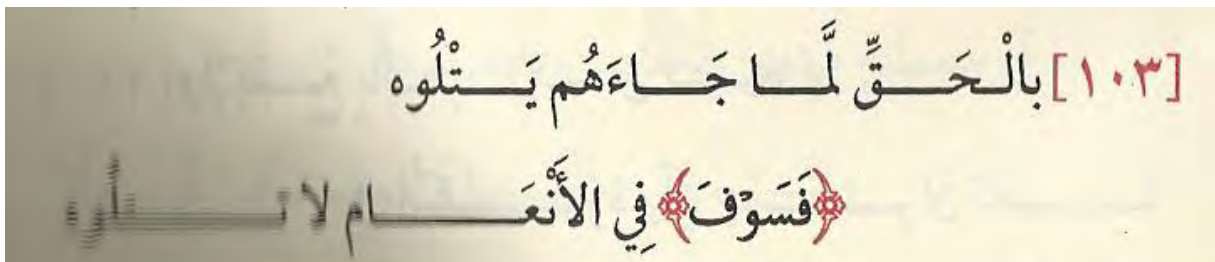 [١٠٣] بالْحَقِّ لَّما جَاءَهُم يَتْلُوه
﴿فَسَوْفَ﴾ فِي الأَنْعَام لا